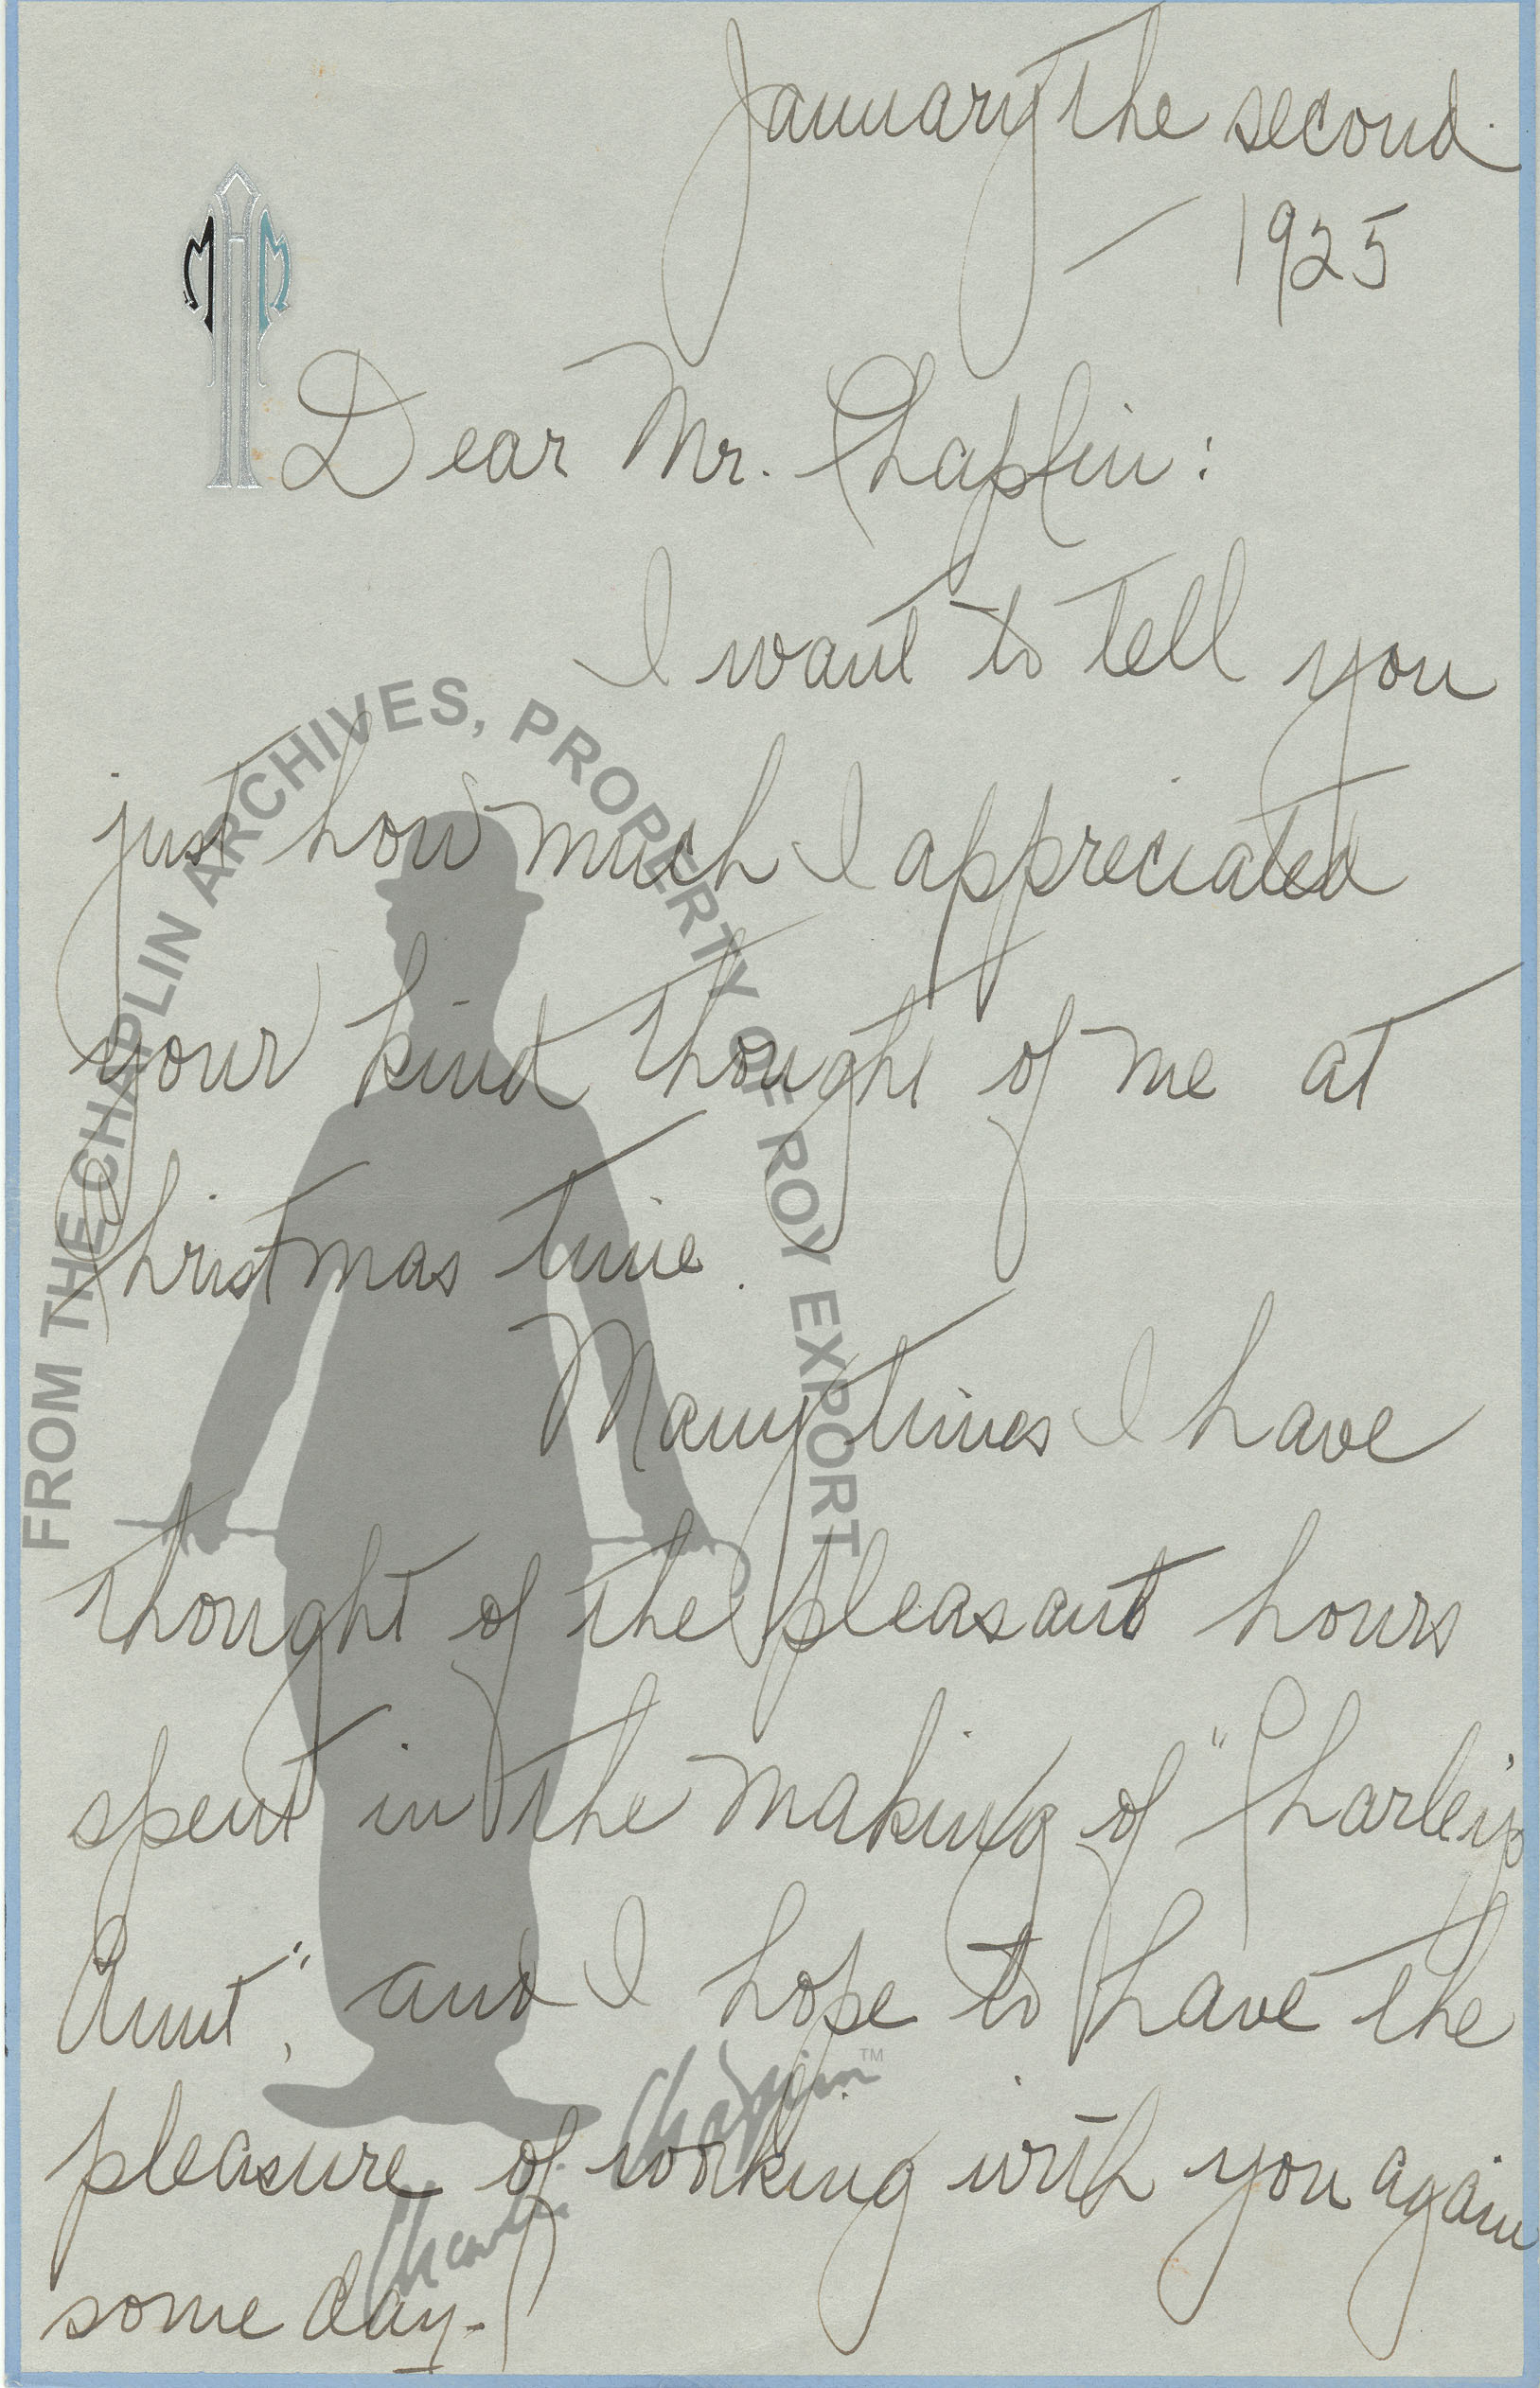 January the second
— 1925
MHM
Dear Mr. Chaplin:
I want to tell you
just how much I appreciated
your kind thought of me at
Christmas time.
Many times I have
thought of the pleasant hours
spent in the making of "Charley's
Aunt", and I hope to have the
pleasure of working with you again
some day.
FROM THE CHAPLIN ARCHIVES, PROPERTY OF ROY EXPORT
Charlie Chaplin™